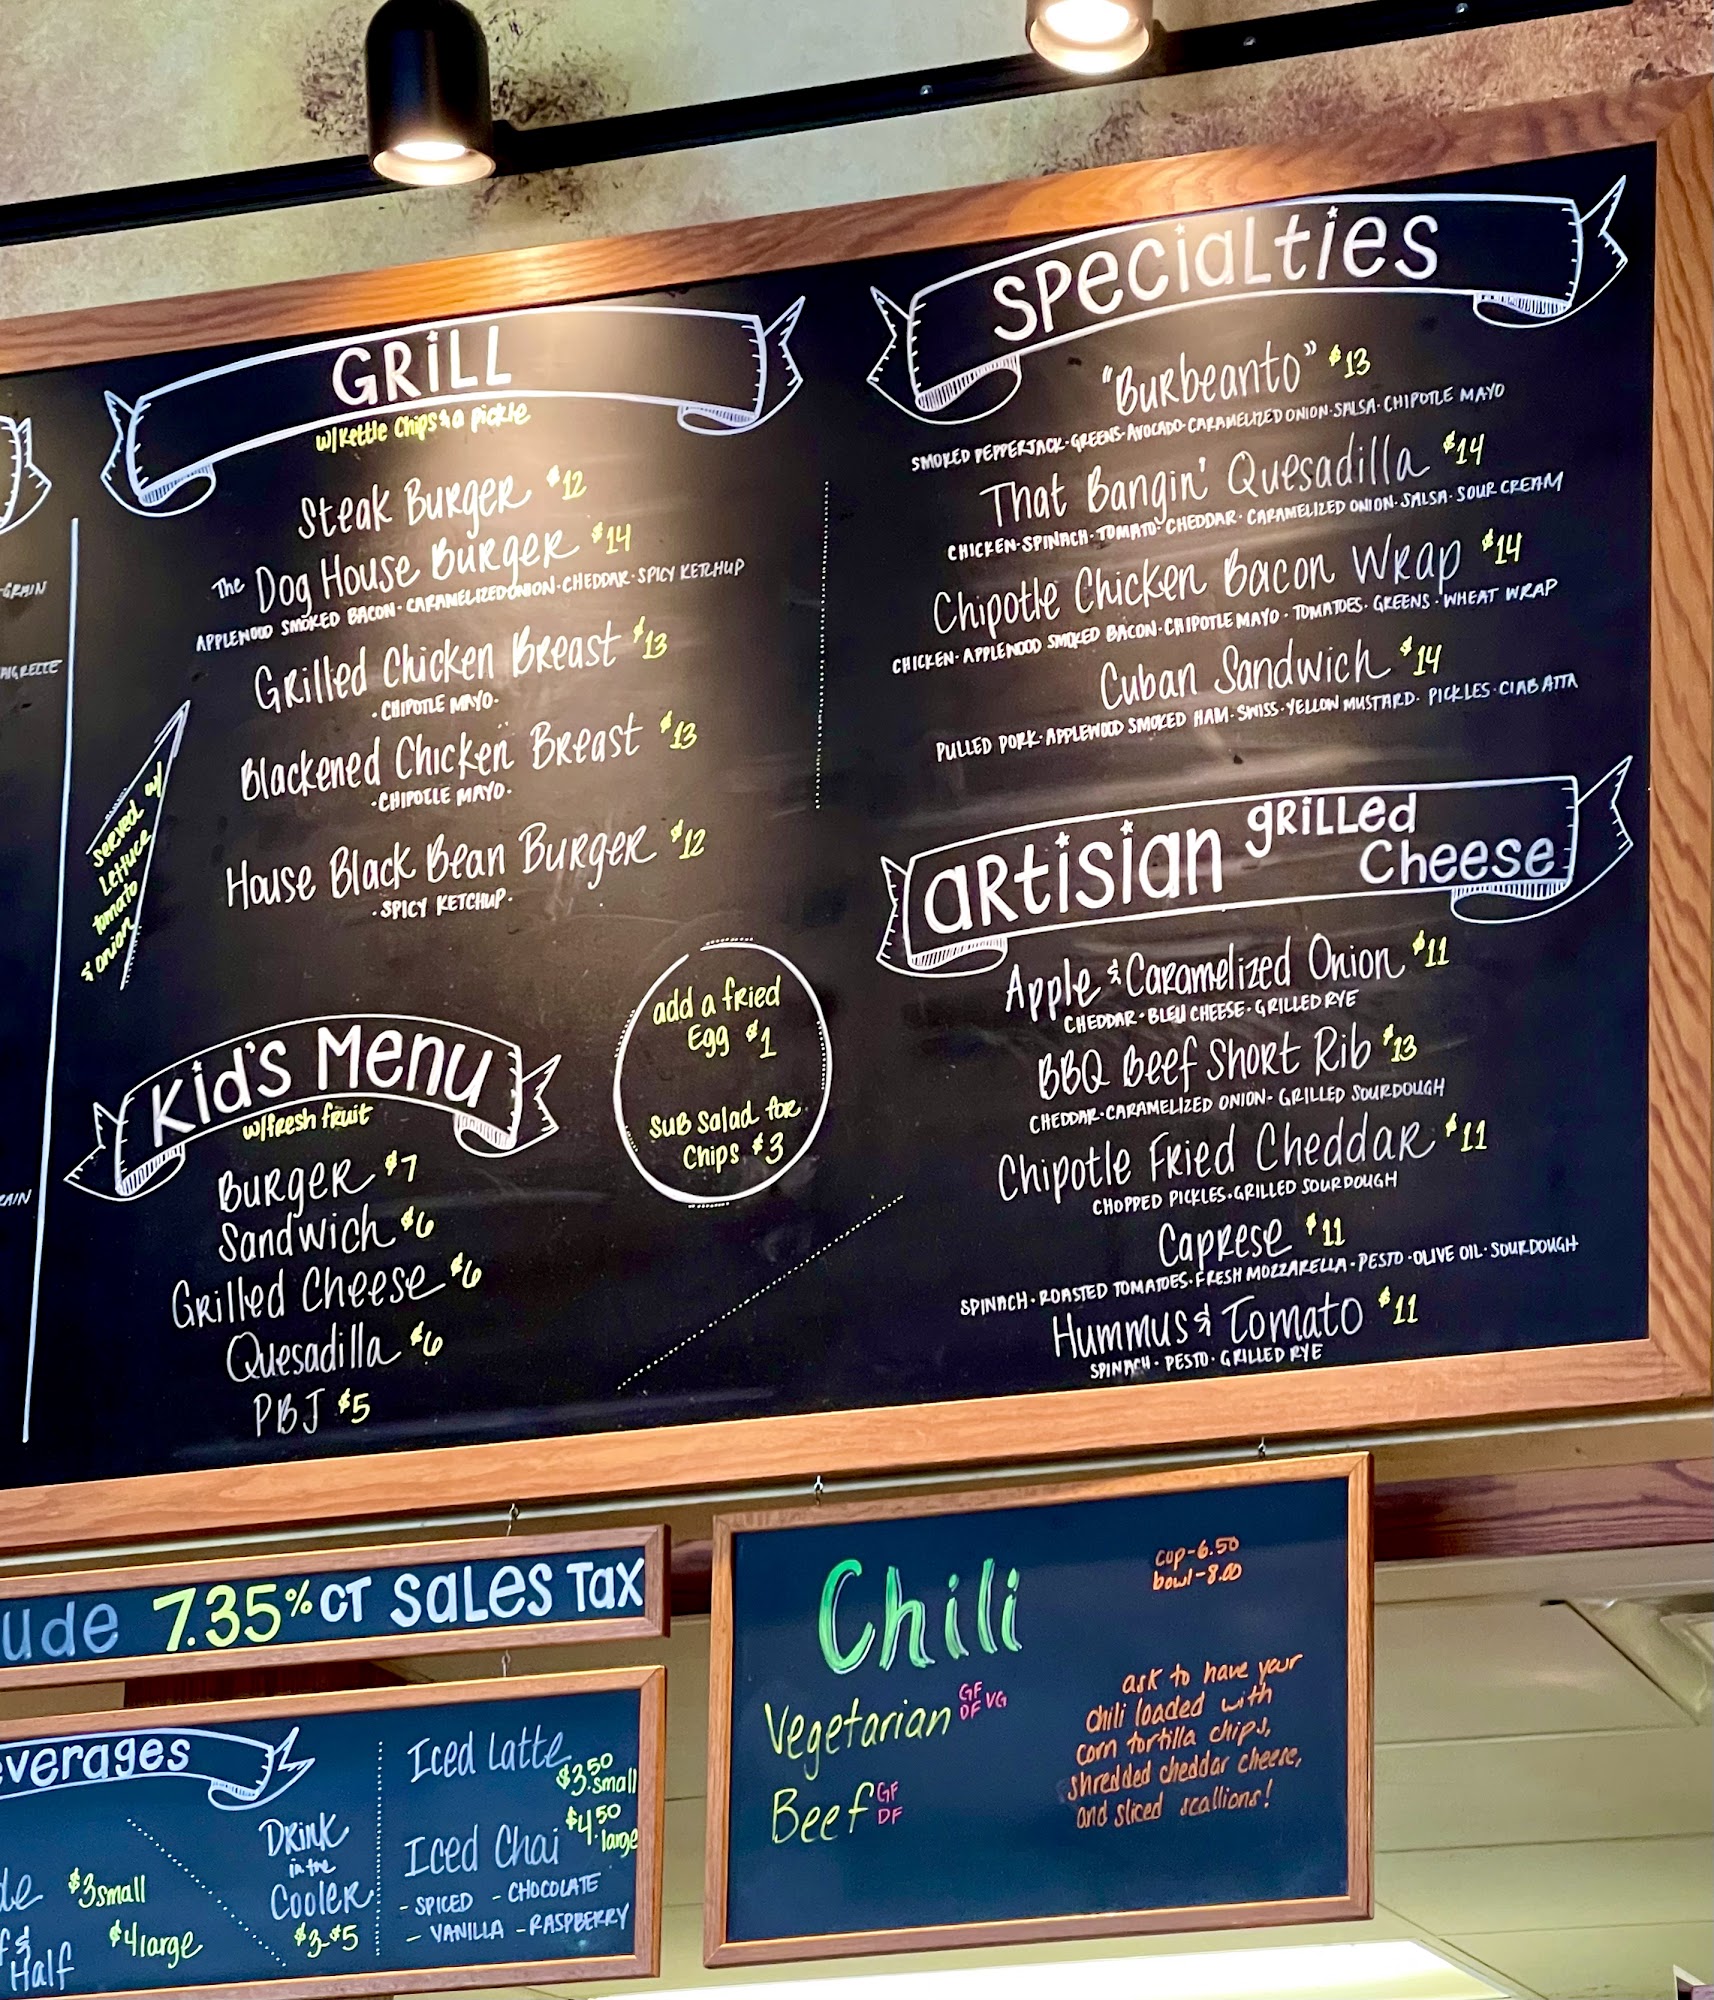 GRAIN
AIGRETTE
GRILL
w/Kettle Chips & a pickle
Steak Burger $12
The Dog House Burger $14
APPLEWOOD SMOKED BACON · CARAMELIZED ONION · CHEDDAR · SPICY KETCHUP
Grilled Chicken Breast $13
· CHIPOTLE MAYO ·
Blackened Chicken Breast $13
· CHIPOTLE MAYO ·
House Black Bean Burger $12
· SPICY KETCHUP ·
served w/
Lettuce
tomato
& onion
Kid's Menu
w/fresh fruit
Burger $7
Sandwich $6
Grilled Cheese $6
Quesadilla $6
PBJ $5
add a fried
Egg $1
Sub Salad for
Chips $3
Specialties
"Burbeanto" $13
SMOKED PEPPERJACK · GREENS · AVOCADO · CARAMELIZED ONION · SALSA · CHIPOTLE MAYO
That Bangin' Quesadilla $14
CHICKEN · SPINACH · TOMATO · CHEDDAR · CARAMELIZED ONION · SALSA · SOUR CREAM
Chipotle Chicken Bacon Wrap $14
CHICKEN · APPLEWOOD SMOKED BACON · CHIPOTLE MAYO · TOMATOES · GREENS · WHEAT WRAP
Cuban Sandwich $14
PULLED PORK · APPLEWOOD SMOKED HAM · SWISS · YELLOW MUSTARD · PICKLES · CIABATTA
Artisian grilled
Cheese
Apple & Caramelized Onion $11
CHEDDAR · BLEU CHEESE · GRILLED RYE
BBQ Beef Short Rib $13
CHEDDAR · CARAMELIZED ONION · GRILLED SOURDOUGH
Chipotle Fried Cheddar $11
CHOPPED PICKLES · GRILLED SOURDOUGH
Caprese $11
SPINACH · ROASTED TOMATOES · FRESH MOZZARELLA · PESTO · OLIVE OIL · SOURDOUGH
Hummus & Tomato $11
SPINACH · PESTO · GRILLED RYE
ude 7.35% CT Sales Tax
everages
$3 small
Half $4 large
Drink
in the
Cooler
$3-$5
Iced Latte
$3.50 small
$4.50 large
Iced Chai
- SPICED - CHOCOLATE
- VANILLA - RASPBERRY
Chili
Vegetarian GF DF VG
Beef GF DF
cup-6.50
bowl-8.00
ask to have your
chili loaded with
corn tortilla chips,
shredded cheddar cheese,
and sliced scallions!